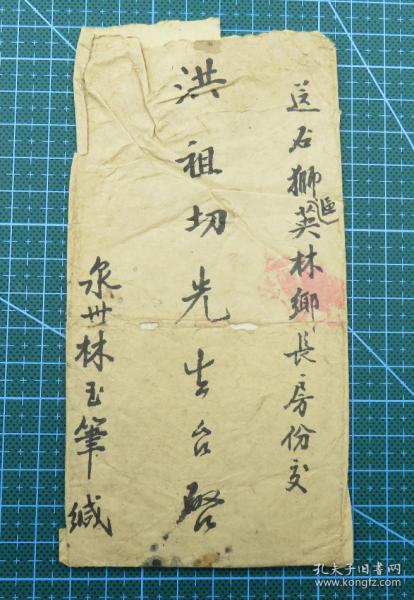 送石狮區英林鄉長房份交
洪祖切先生台啓
泉州林玉筆緘
孔夫子旧书网
www.kongfz.com